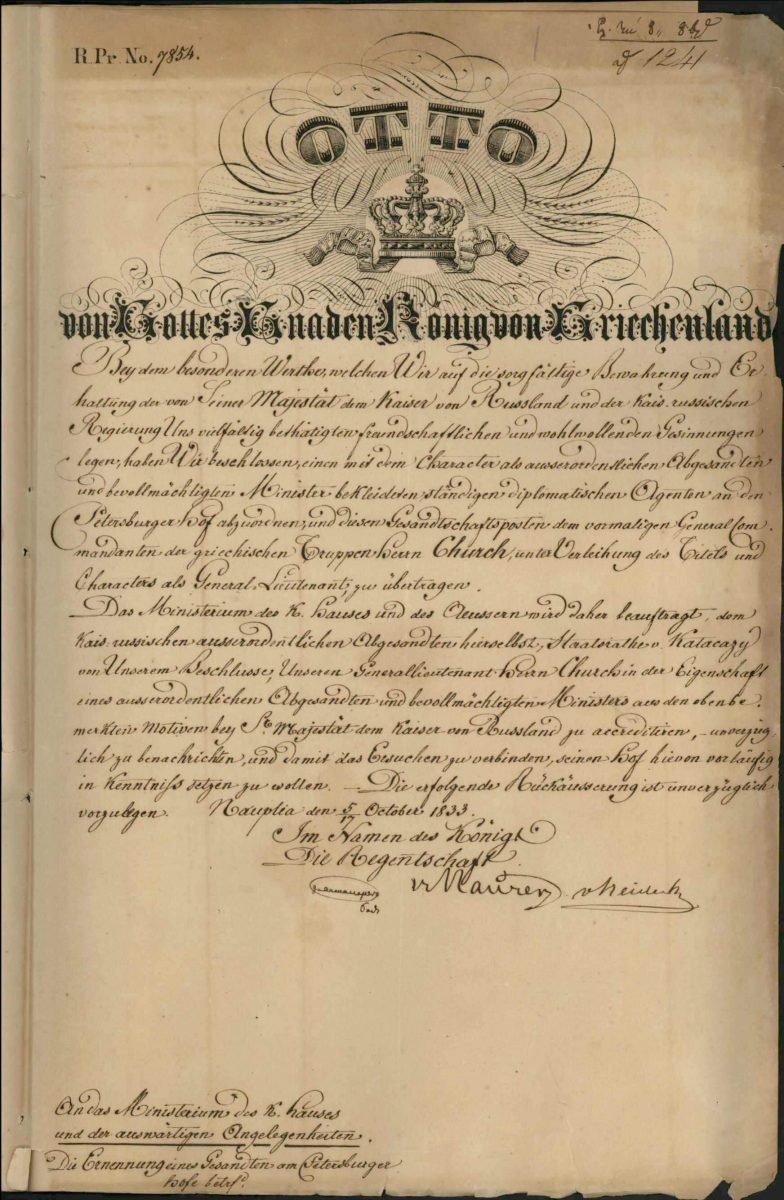 R. Pr. No. 7854.
124
OTTO
von Gottes Gnaden König von Griechenland
Bey dem besonderen Werthe, welchen Wir auf die sorgfältige Bewahrung und Er-
haltung der von Seiner Majestät dem Kaiser von Russland und der Kais. russischen
Regierung Uns vielfältig bethätigten freundschaftlichen und wohlwollenden Gesinnungen
legen, haben Wir beschlossen, einen mit dem Character als ausserordentlichen Abgesandten
und bevollmächtigten Minister bekleideten ständigen diplomatischen Agenten an den
Petersburger Hof abzuordnen, und diesen Gesandtschaftsposten dem vormaligen General Com-
mandanten der griechischen Truppen Herrn Church, unter Verleihung des Titels und
Characters als General-Lieutenant, zu übertragen.
Das Ministerium des K. Hauses und des Aeussern wird daher beauftragt, dem
Kais. russischen ausserordentlichen Abgesandten hierselbst, Staatsrathe v. Katacazy
von Unserem Beschlusse, Unseren Generallieutenant Herrn Church in der Eigenschaft
eines ausserordentlichen Abgesandten und bevollmächtigten Ministers aus den obenbe-
merkten Motiven bey Sr. Majestät dem Kaiser von Russland zu accreditiren, unverzüg-
lich zu benachrichten, und damit das Ersuchen zu verbinden, seinen Hof hievon vorläufig
in Kenntniss setzen zu wollen. — Die erfolgende Rückäusserung ist unverzüglich
vorzulegen. Nauplia den 5/17 October 1833.
Im Namen des Königs
Die Regentschaft.
v. Maurer v. Heideck
An das Ministerium des K. Hauses
und der auswärtigen Angelegenheiten.
Die Ernennung eines Gesandten am Petersburger
Hofe betrf.